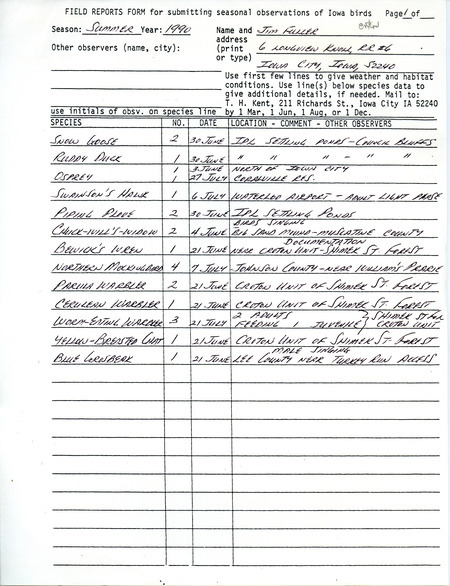 FIELD REPORTS FORM for submitting seasonal observations of Iowa birds Page 1 of
Season: SUMMER Year: 1990 Name and JIM FULLER
address
Other observers (name, city): (print 6 LONGVIEW KNOLL, RR #6
or type) IOWA CITY, IOWA, 52240
Use first few lines to give weather and habitat
conditions. Use line(s) below species data to
give additional details, if needed. Mail to:
T. H. Kent, 211 Richards St., Iowa City IA 52240
use initials of obsv. on species line by 1 Mar, 1 Jun, 1 Aug, or 1 Dec.
SPECIES NO. DATE LOCATION - COMMENT - OTHER OBSERVERS
SNOW GOOSE 2 30 JUNE IPL SETTLING PONDS - COUNCIL BLUFFS
RUDDY DUCK 1 30 JUNE " " " " "
1 3 JUNE NORTH OF IOWA CITY
OSPREY 1 27 JULY CORALVILLE RES.
SWAINSON'S HAWK 1 6 JULY WATERLOO AIRPORT - ADULT LIGHT PHASE
PIPING PLOVER 2 30 JUNE IPL SETTLING PONDS
BIRDS SINGING
CHUCK-WILL'S-WIDOW 2 4 JUNE BIG SAND MOUND - MUSCATINE COUNTY
DOCUMENTATION
BEWICK'S WREN 1 21 JUNE NEAR CROTON UNIT - SHIMEK ST. FOREST
NORTHERN MOCKINGBIRD 4 7 JULY JOHNSON COUNTY - NEAR WILLIAMS PRAIRIE
PARULA WARBLER 2 21 JUNE CROTON UNIT OF SHIMEK ST. FOREST
CERULEAN WARBLER 1 21 JUNE CROTON UNIT OF SHIMEK ST. FOREST
2 ADULTS } SHIMEK ST FOR
WORM-EATING WARBLER 3 21 JULY FEEDING 1 JUVENILE } CROTON UNIT
YELLOW-BREASTED CHAT 1 21 JUNE CROTON UNIT OF SHIMEK ST. FOREST
MALE SINGING
BLUE GROSBEAK 1 21 JUNE LEE COUNTY NEAR TURKEY RUN ACCESS